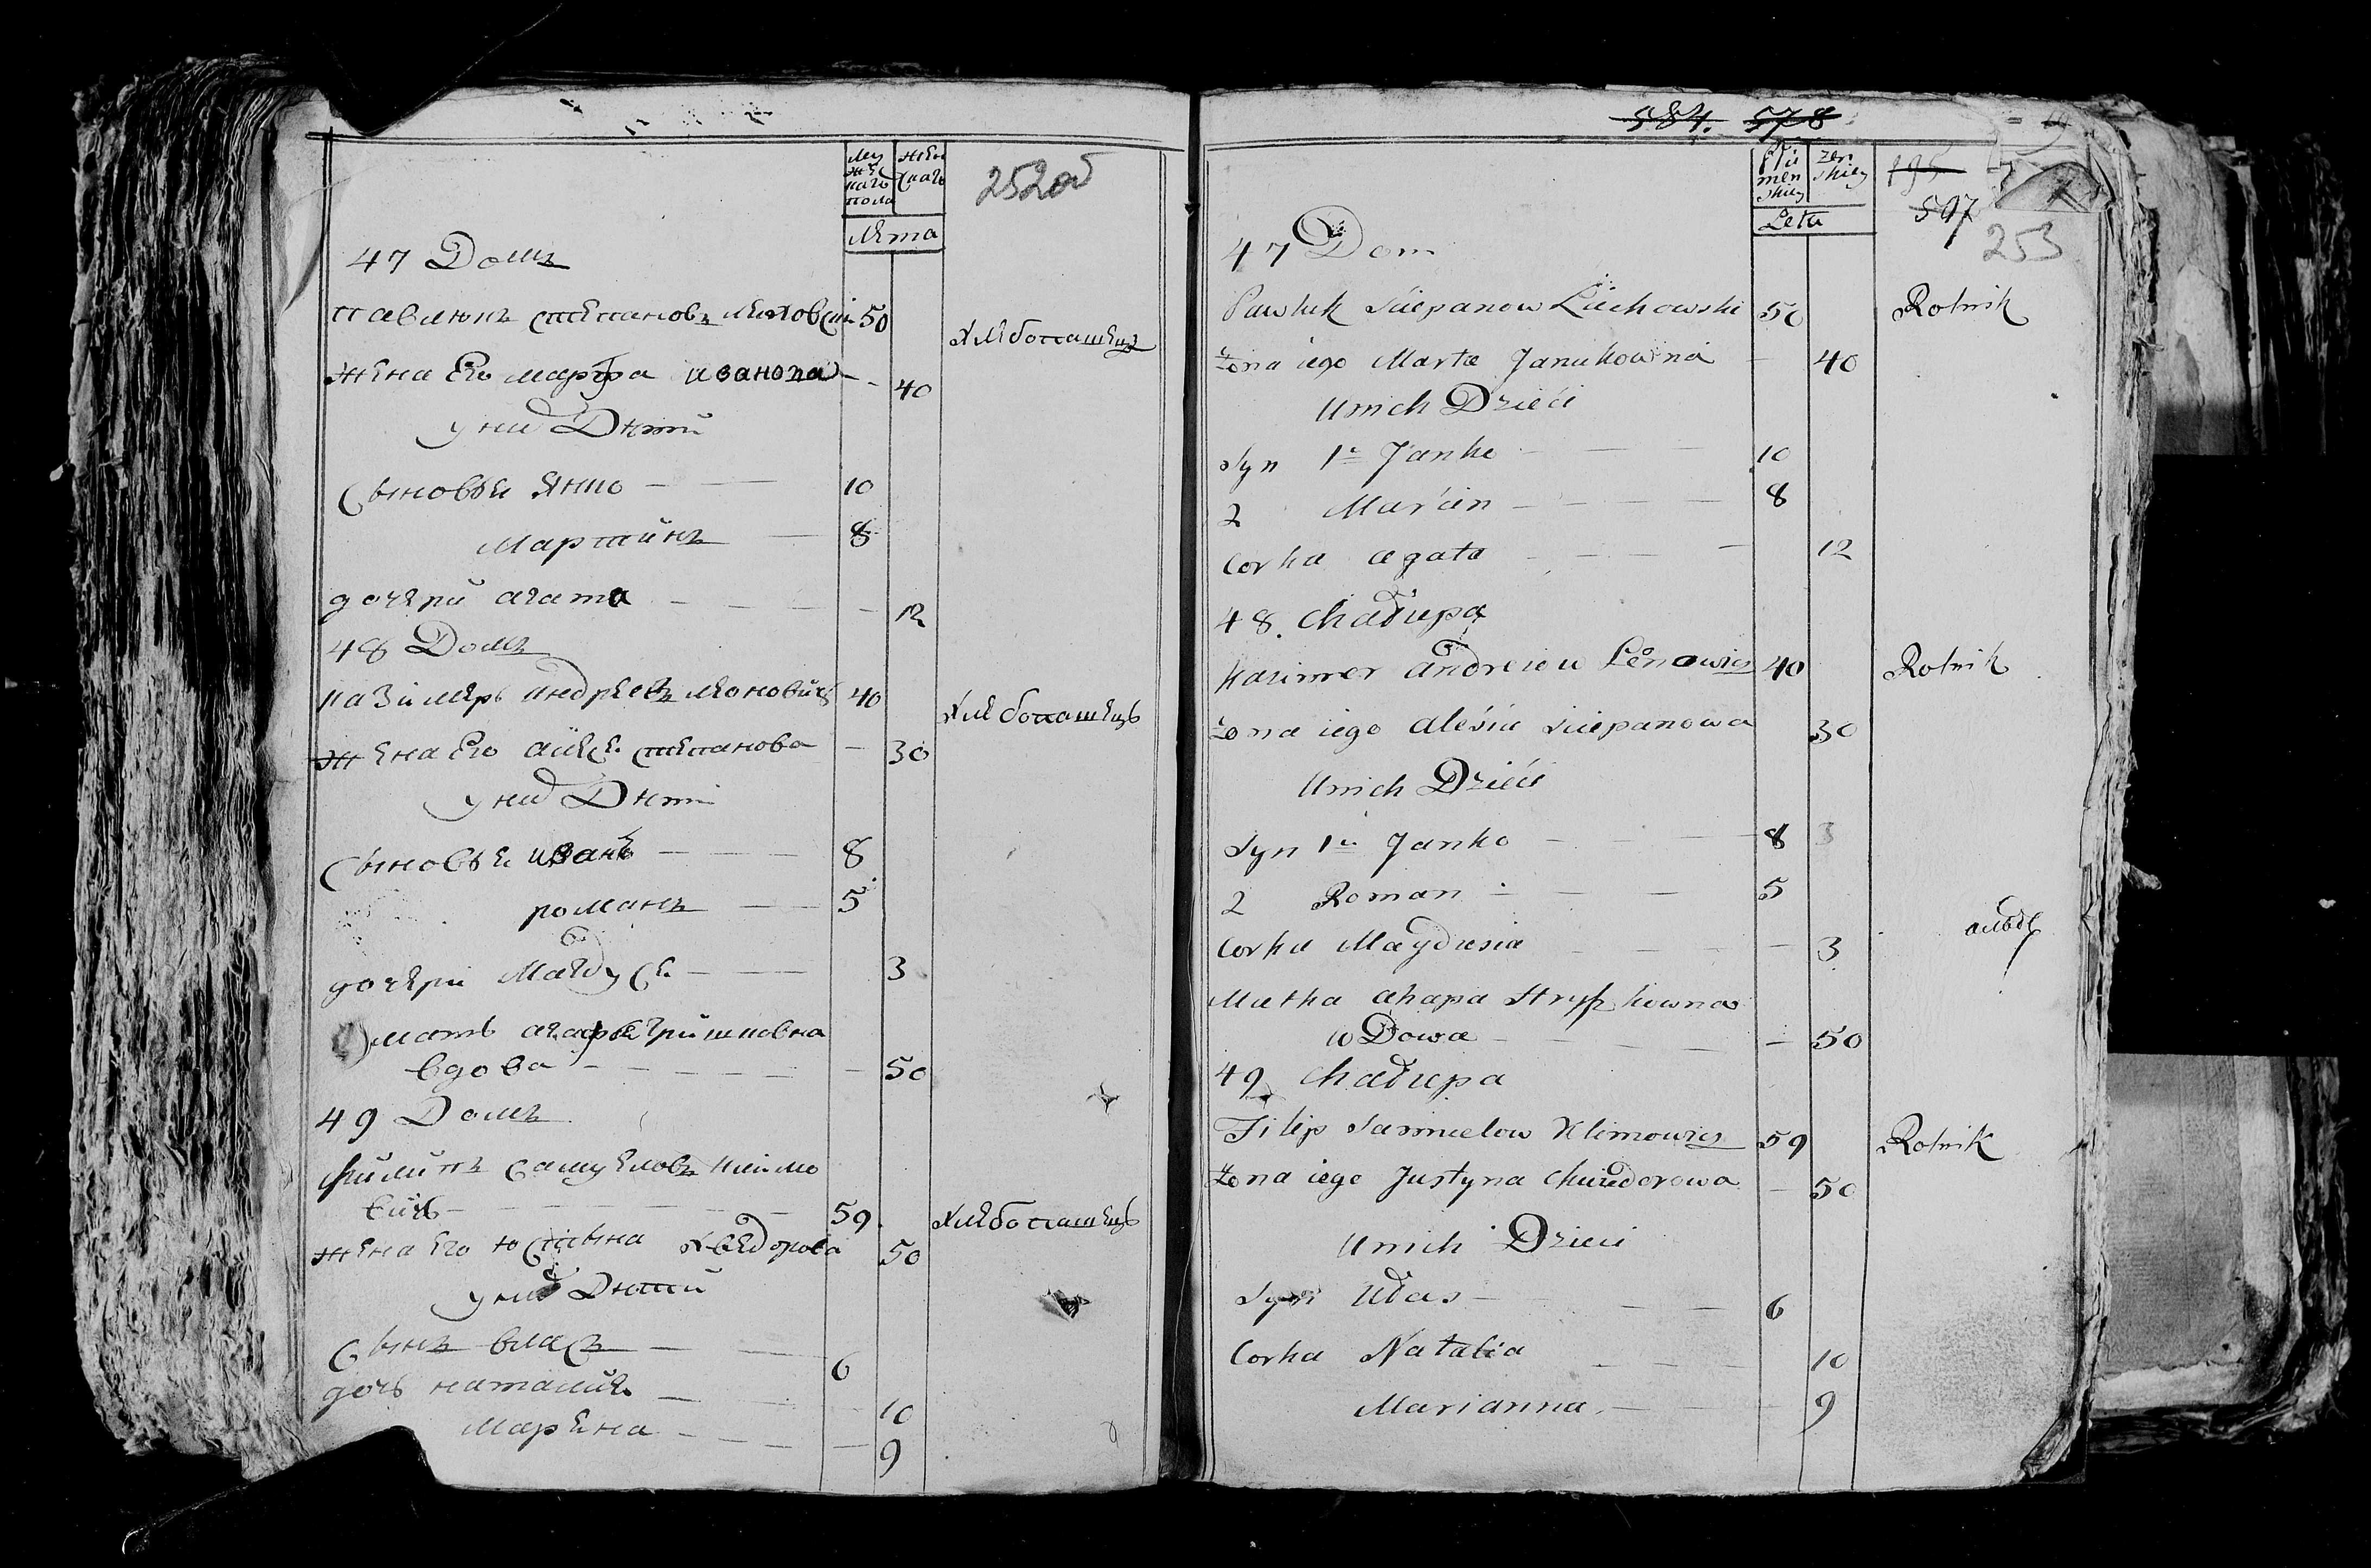 252об
мужскаго пола
женскаго
лета
47 Домъ
павлюкъ степановъ леховски 50 хлебопашецъ
жена Его марфа иванова 40
у них Дети
сыновья янко 10
мартинъ 8
дочери агата 12
48 Домъ
казимеръ андреевъ леновичъ 40 хлебопашецъ
жена Его алеся степанова 30
у них Дети
сыновья иванъ 8
романъ 5
дочери магдуся 3
мать агафя
вдова 50
49 Домъ
филипъ самуеловъ климо
вичъ 59 хлебопашецъ
жена его юстына хведорова 50
у них Дети
сынъ власъ 6
дочь наталия 10
марьяна 9
584. 578
597
253
Leta
47 Dom
Pawluk Sciepanow Lichowski 50 Rolnik
żona iego Marta Janukowna 40
Unich Dzieci
Syn 1 Janko 10
2 Marcin 8
Corka agata 12
48. Chałupa
Kazimer andreiew Lenowicz 40 Rolnik
żona iego Alesia Sciepanowa 30
Unich Dzieci
Syn 1 Janko 8 3
2 Roman 5
Corka Magdusia 3
Matka ahapa
wDowa 50
49 Chałupa
Filip Samuelow Klimowicz 59 Rolnik
żona iego Justyna Chwiedorowa 50
Unich Dzieci
Syn Ułas 6
Corka Natalia 10
Marianna 9